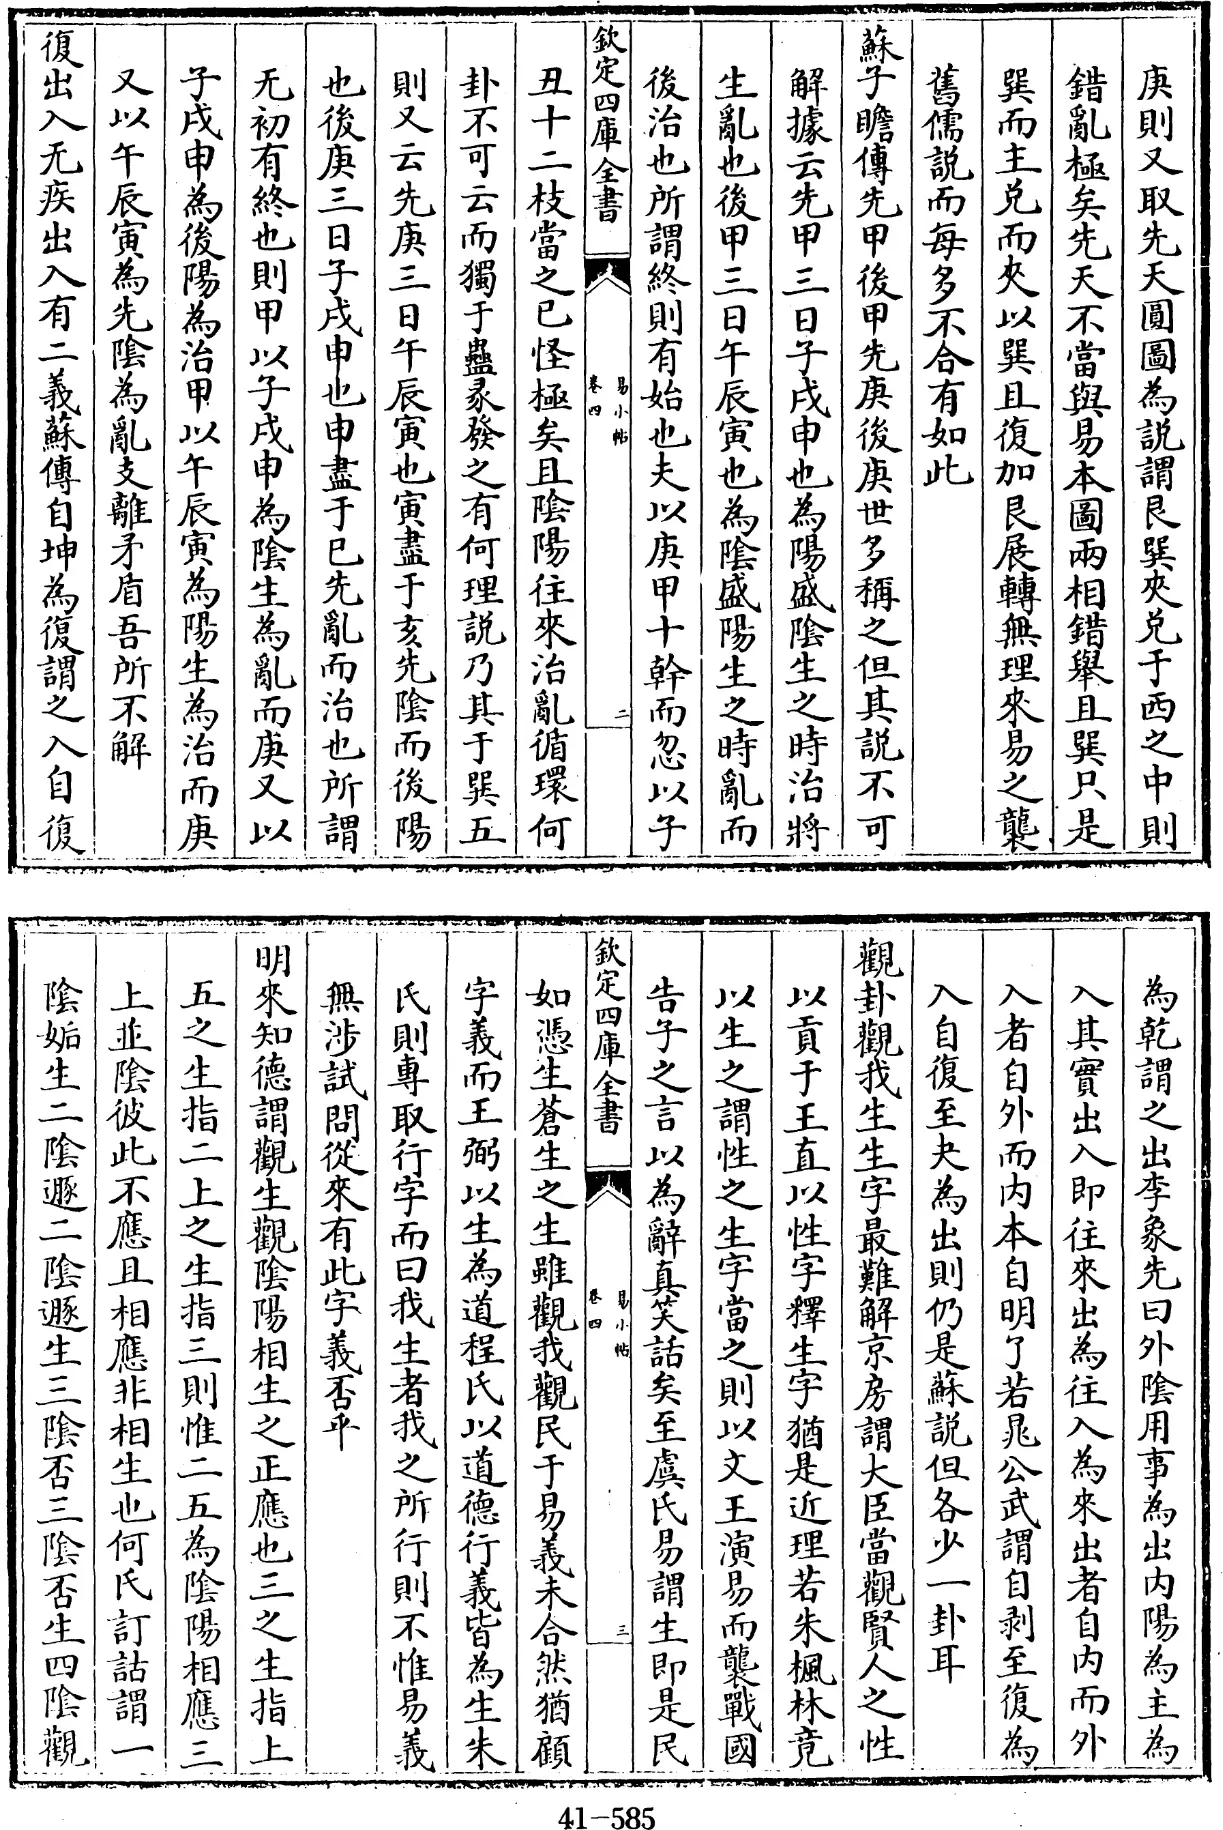 庚則又取先天圓圖為説謂艮巽夾兑于西之中則
錯亂極矣先天不當與易本圖兩相錯舉且巽只是
巽而主兑而夾以巽且復加艮展轉無理來易之襲
舊儒説而每多不合有如此
蘇子瞻傳先甲後甲先庚後庚世多稱之但其説不可
解據云先甲三日子戌申也為陽盛陰生之時治將
生亂也後甲三日午辰寅也為陰盛陽生之時亂而
後治也所謂終則有始也夫以庚甲十幹而忽以子
欽定四庫全書
易小帖
卷四
二
丑十二枝當之已怪極矣且陰陽往來治亂循環何
卦不可云而獨于蠱彖發之有何理説乃其于巽五
則又云先庚三日午辰寅也寅盡于亥先陰而後陽
也後庚三日子戌申也申盡于巳先亂而治也所謂
无初有終也則甲以子戌申為陰生為亂而庚又以
子戌申為後陽為治甲以午辰寅為陽生為治而庚
又以午辰寅為先陰為亂支離矛盾吾所不解
復出入无疾出入有二義蘇傳自坤為復謂之入自復
為乾謂之出李象先曰外陰用事為出内陽為主為
入其實出入即往來出為往入為來出者自内而外
入者自外而内本自明了若晁公武謂自剥至復為
入自復至夬為出則仍是蘇説但各少一卦耳
觀卦觀我生生字最難解京房謂大臣當觀賢人之性
以貢于王直以性字釋生字猶是近理若朱楓林竟
以生之謂性之生字當之則以文王演易而襲戰國
告子之言以為辭真笑話矣至虞氏易謂生即是民
欽定四庫全書
易小帖
卷四
三
如憑生蒼生之生雖觀我觀民于易義未合然猶顧
字義而王弼以生為道程氏以道德行義皆為生朱
氏則專取行字而曰我生者我之所行則不惟易義
無涉試問從來有此字義否乎
明來知德謂觀生觀陰陽相生之正應也三之生指上
五之生指二上之生指三則惟二五為陰陽相應三
上並陰彼此不應且相應非相生也何氏訂詁謂一
陰姤生二陰遯二陰遯生三陰否三陰否生四陰觀
41-585